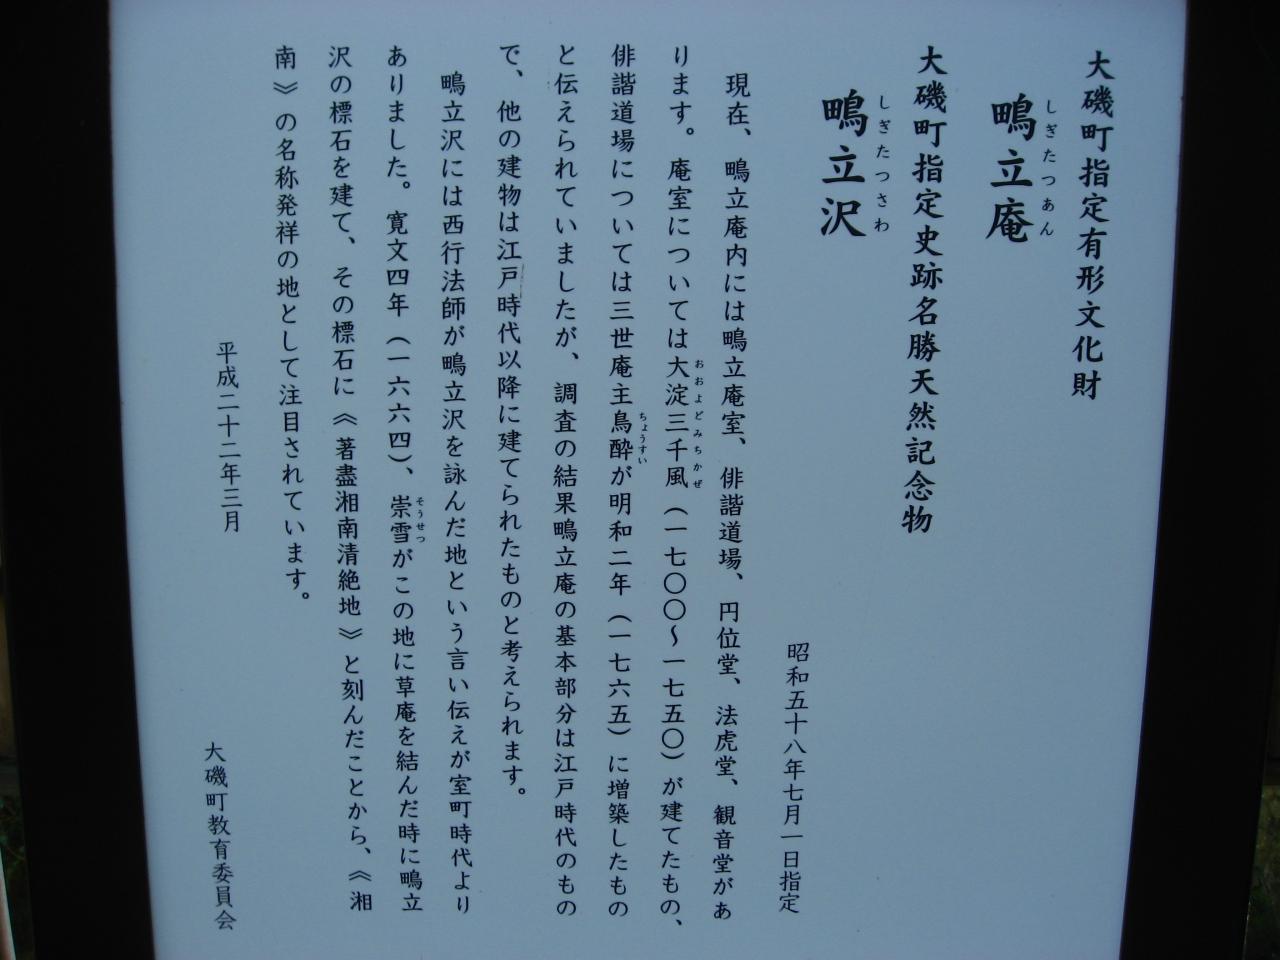 大磯町指定有形文化財
鴫立庵
しぎたつあん
大磯町指定史跡名勝天然記念物
鴫立沢
しぎたつさわ
昭和五十八年七月一日指定
現在、鴫立庵内には鴫立庵室、俳諧道場、円位堂、法虎堂、観音堂があ
ります。庵室については大淀三千風（一七〇〇～一七五〇）が建てたもの、
おおよどみちかぜ
俳諧道場については三世庵主鳥酔が明和二年（一七六五）に増築したもの
ちょうすい
と伝えられていましたが、調査の結果鴫立庵の基本部分は江戸時代のもの
で、他の建物は江戸時代以降に建てられたものと考えられます。
鴫立沢には西行法師が鴫立沢を詠んだ地という言い伝えが室町時代より
ありました。寛文四年（一六六四）、崇雪がこの地に草庵を結んだ時に鴫立
そうせつ
沢の標石を建て、その標石に《著盡湘南清絶地》と刻んだことから、《湘
南》の名称発祥の地として注目されています。
平成二十二年三月
大磯町教育委員会